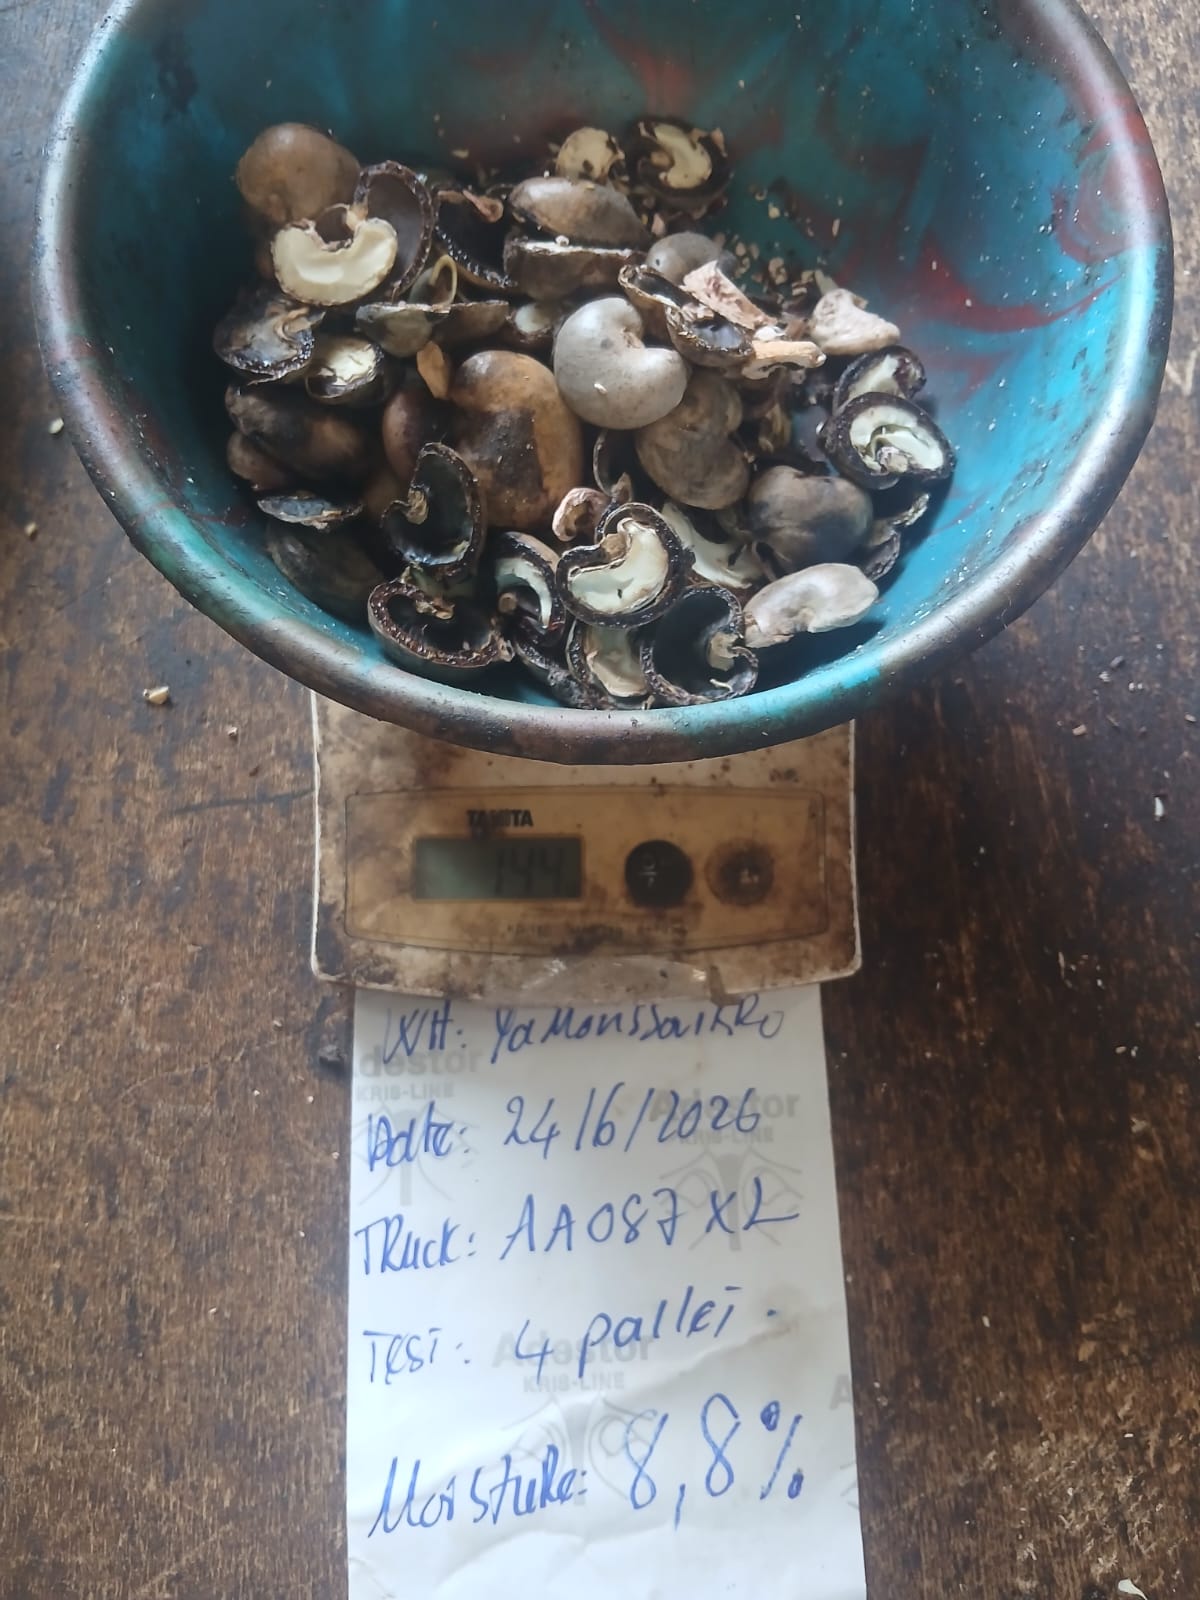 TANITA
144
WH: Yamoussoukro
Adestor
KRIB-LINE
Date: 24/6/2026
Adestor
KRIB-LINE
Truck: AA087XL
Test: 4 pallet.
Adestor
KRIB-LINE
Moisture: 8,8%